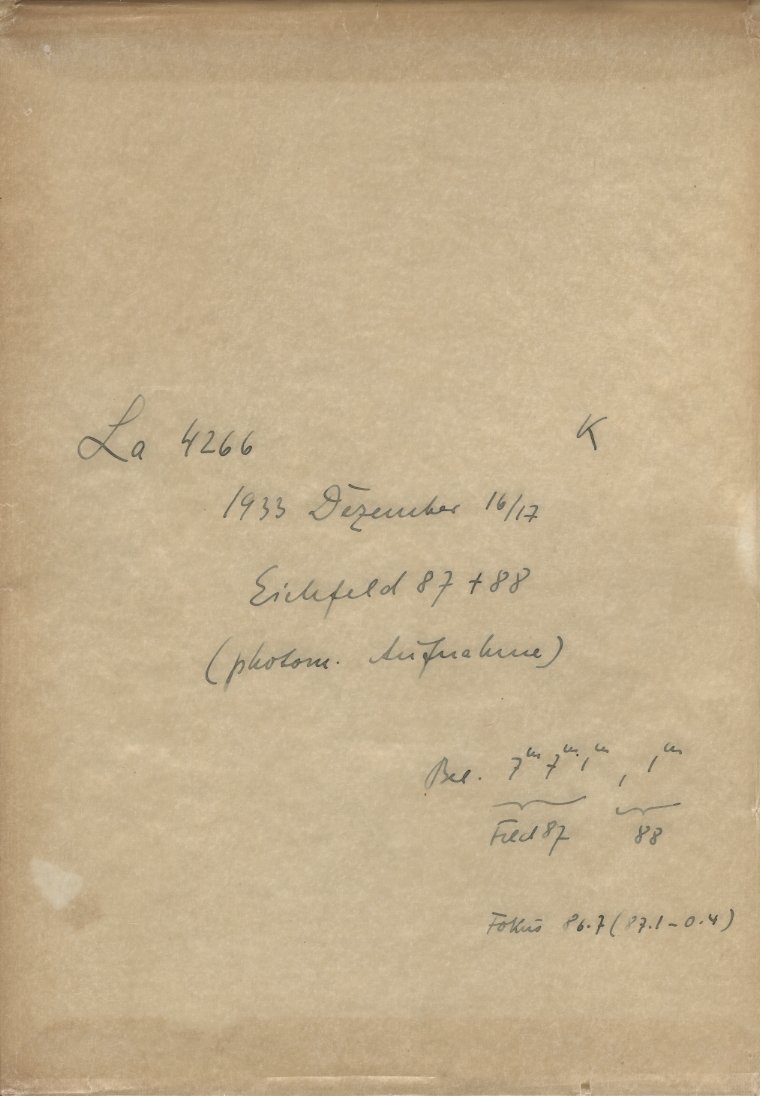 La 4266 K
1933 Dezember 16/17
Eichfeld 87 + 88
(photom. Aufnahme)
Bel. 7ᵐ 7ᵐ 1ᵐ , 1ᵐ
Feld 87 88
Fokus 86.7 (87.1 - 0.4)